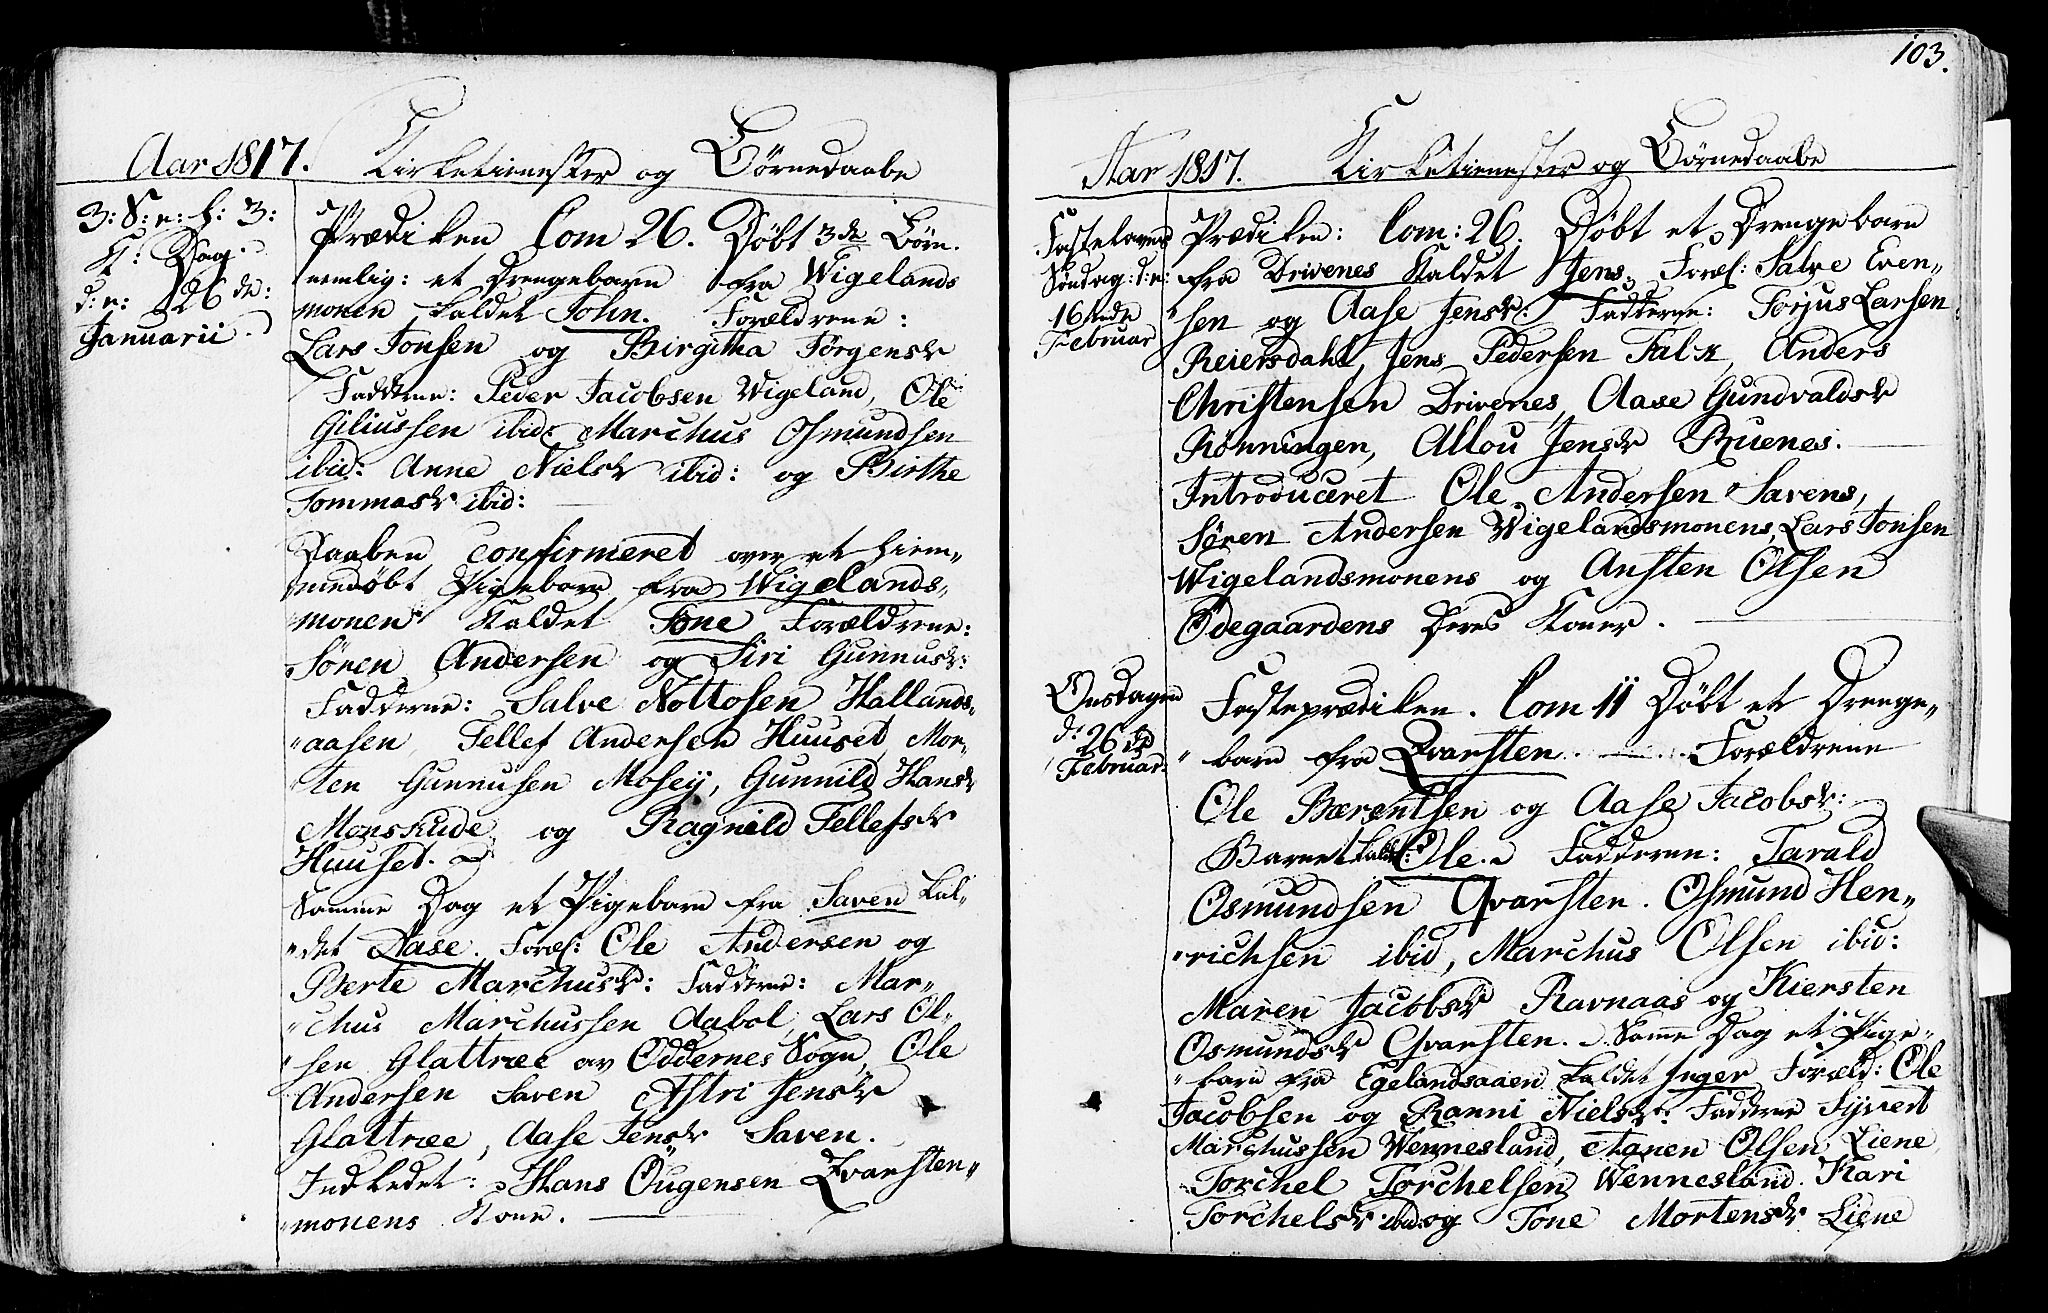 Aar 1817. Kirketienester og Börnedaabe
3: S: e: h: 3:
K: Dag.
d: e: 26 de:
Januarii.
Prædiken Com 26. Döbt 3de Börn.
nemlig: et Drengebarn fra Wigelands
monen kaldet John. Forældrene:
Lars Jonsen og Birgitha Jörgensdr
Fadderne: Peder Jacobsen Wigeland, Ole
Giliussen ibid: Marchus Osmundsen
ibid: Anne Nielsdr ibid: og Birthe
Tommasdr ibid:
Daaben confirmeret over et hiem„
medöbt Pigebarn fra Wigelands„
monen kaldet Tone Forældrene:
Sören Andersen og Siri Gunnusdr:
Fadderne: Salve Nottosen Hallands„
„aasen, Tellef Andersen Huuset, Mor„
„ten Gunnusen Mosey, Gunnild Hansdr
Monskude og Ragnild Tellefsdr
Huuset.
Samme Dag et Pigebarn fra Saven kal„
„det Aase. Foræl: Ole Andersen og
Berte Marchusdr: Fadderne: Mar„
„chus Marchussen Aabol, Lars Ol„
„sen Glattræe av Oddernes Sogn, Ole
Andersen Saven Astri Jensdr
Glattræe, Aase Jensdr Saven.
Indledet: Hans Öugensen Qvarsten„
„monens Kone.
103.
Aar 1817. Kirketienester og Börnedaabe
Fastelavns
Söndag: d: e:
16tende
Februar
Prædiken: Com: 26. Döbt et Drengebarn
fra Drivenes Kaldet Jens. Foræl: Salve Even„
„sen og Aase Jensdr: Fadderne: Torjus Larsen
Reiersdahl, Jens Pedersen Falck, Anders
Christensen Drivenes, Aase Gundvaldsdr
Rönningen, Allou Jensdr Ruenes.
Introduceret Ole Andersen Savens,
Sören Andersen Wigelandsmonens, Lars Jonsen
Wigelandsmonens og Ansten Olsen
Ödegaardens Deres Koner.
Onsdagen
d: 26 de
Februar.
Fasteprædiken. Com 11 Döbt et Drenge„
„barn fra Qvarsten. Forældrene
Ole Bærentsen og Aase Jacobsdr:
Barnet kaldt: Ole. Fadderne: Tarald
Osmundsen Qvarsten. Osmund Hen„
„richsen ibid, Marchus Olsen ibid:
Maren Jacobsdr Ravnaas og Kiersten
Osmundsdr Qvarsten. Samme Dag et Pige„
„barn fra Egelandsaaen kaldet Inger Foræld: Ole
Jacobsen og Ranni Nielsdr: Fadderne Syvert
Marchussen Wennesland, Aanen Olsen Liene,
Torchel Torchelsen Wennesland. Kari
Torchelsdr ibid: og Tone Mortensdr Liene